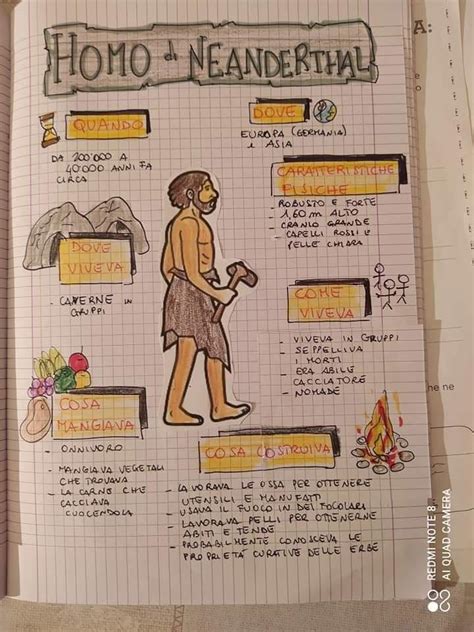 HOMO di NEANDERTHAL
QUANDO
DA 200'000 A
40'000 ANNI FA
CIRCA
DOVE
EUROPA (GERMANIA)
E ASIA
CARATTERISTICHE
FISICHE
- ROBUSTO E FORTE
- 1,60 m ALTO
- CRANIO GRANDE
- CAPELLI ROSSI E
PELLE CHIARA
DOVE
VIVEVA
- CAVERNE IN
GRUPPI
COME
VIVEVA
- VIVEVA IN GRUPPI
- SEPPELLIVA
I MORTI
- ERA ABILE
CACCIATORE
- NOMADE
COSA
MANGIAVA
- ONNIVORO
- MANGIAVA VEGETALI
CHE TROVAVA
- LA CARNE CHE
CACCIAVA
CUOCENDOLA
COSA COSTRUIVA
- LAVORAVA LE OSSA PER OTTENERE
UTENSILI E MANUFATTI
- USAVA IL FUOCO IN DEI FOCOLARI
- LAVORAVA PELLI PER OTTENERNE
ABITI E TENDE
- PROBABILMENTE CONOSCEVA LE
PROPRIETÀ CURATIVE DELLE ERBE
A:
ne ne
REDMI NOTE 8
AI QUAD CAMERA